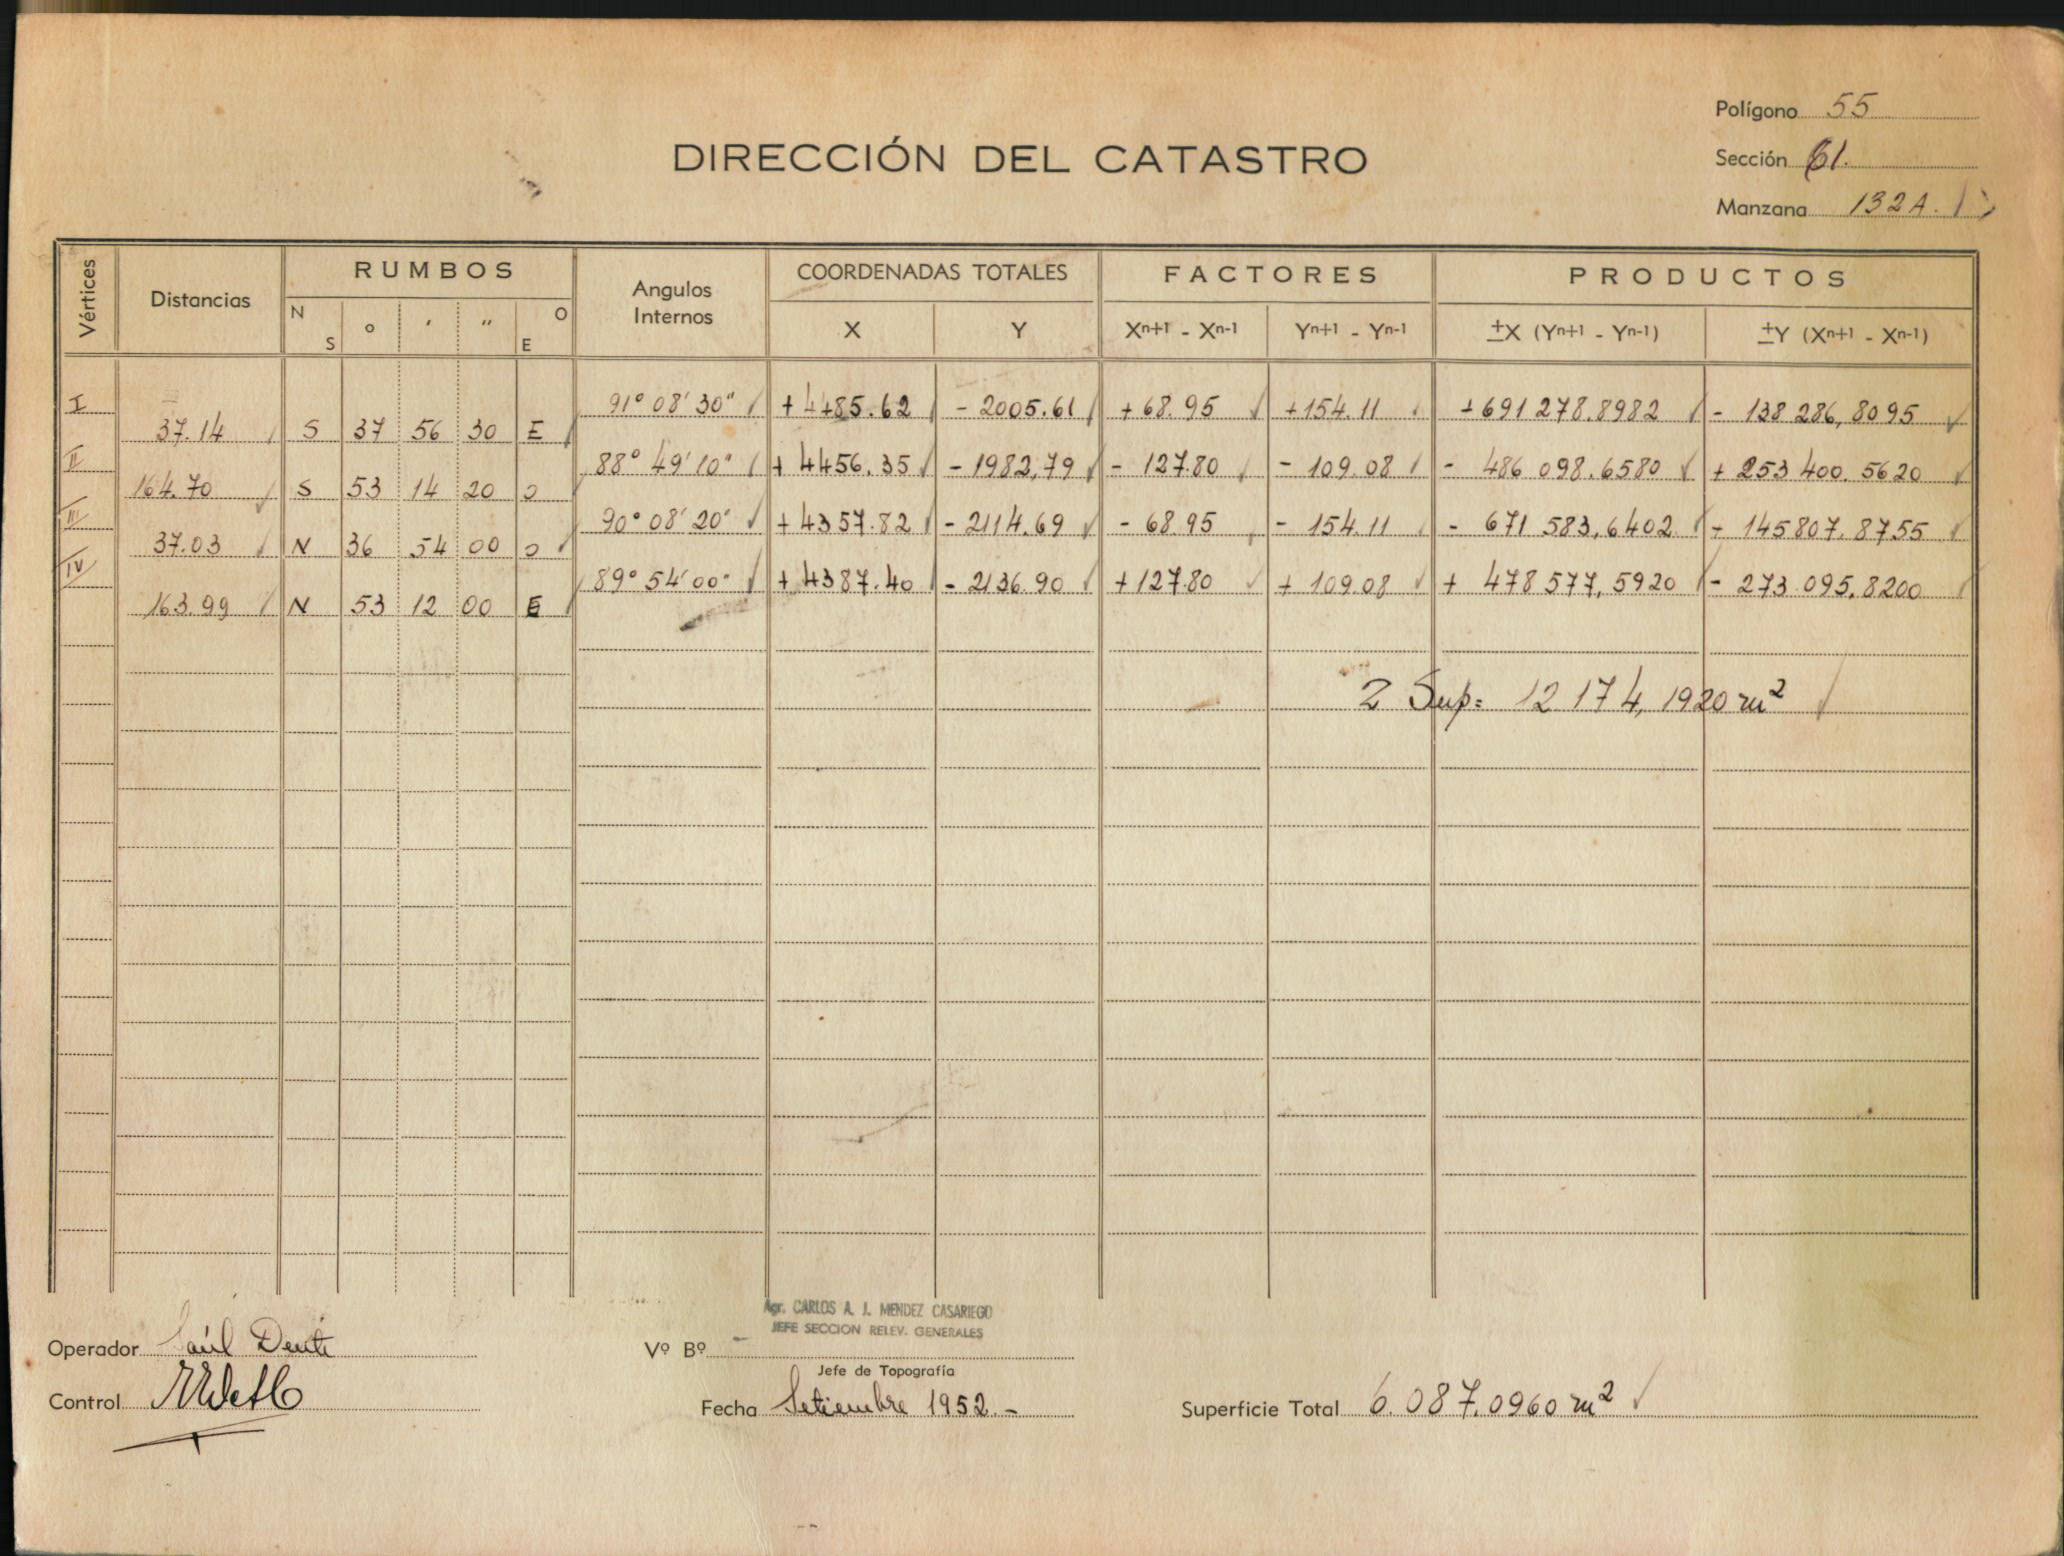 Polígono 55
DIRECCIÓN DEL CATASTRO
Sección 61.
Manzana 132A.
Vértices Distancias RUMBOS Angulos Internos COORDENADAS TOTALES FACTORES PRODUCTOS
N S ° ' " O E X Y Xn+1 - Xn-1 Yn+1 - Yn-1 ±X (Yn+1 - Yn-1) ±Y (Xn+1 - Xn-1)
I 91° 08' 30" +4485.62 - 2005.61 +68.95 +154.11 +691 278.8982 - 138 286,8095
37.14 S 37 56 30 E
II 88° 49' 10" + 4456.35 - 1982,79 - 127.80 - 109.08 - 486 098.6580 + 253 400.5620
164.70 S 53 14 20 O
III 90° 08' 20" +4357.82 - 2114.69 - 68.95 - 154.11 - 671 583,6402 + 145807.8755
37.03 N 36 54 00 O
IV 89° 54' 00" + 4387.40 - 2136.90 +127.80 + 109.08 + 478 577,5920 - 273.095,8200
163.99 N 53 12 00 E
2 Sup= 12 174,1920 m²
Agr. CARLOS A. J. MENDEZ CASARIEGO
JEFE SECCION RELEV. GENERALES
Operador Saúl Denti
Vº Bº
Jefe de Topografía
Control
Fecha Setiembre 1952.-
Superficie Total 6.087,0960 m²